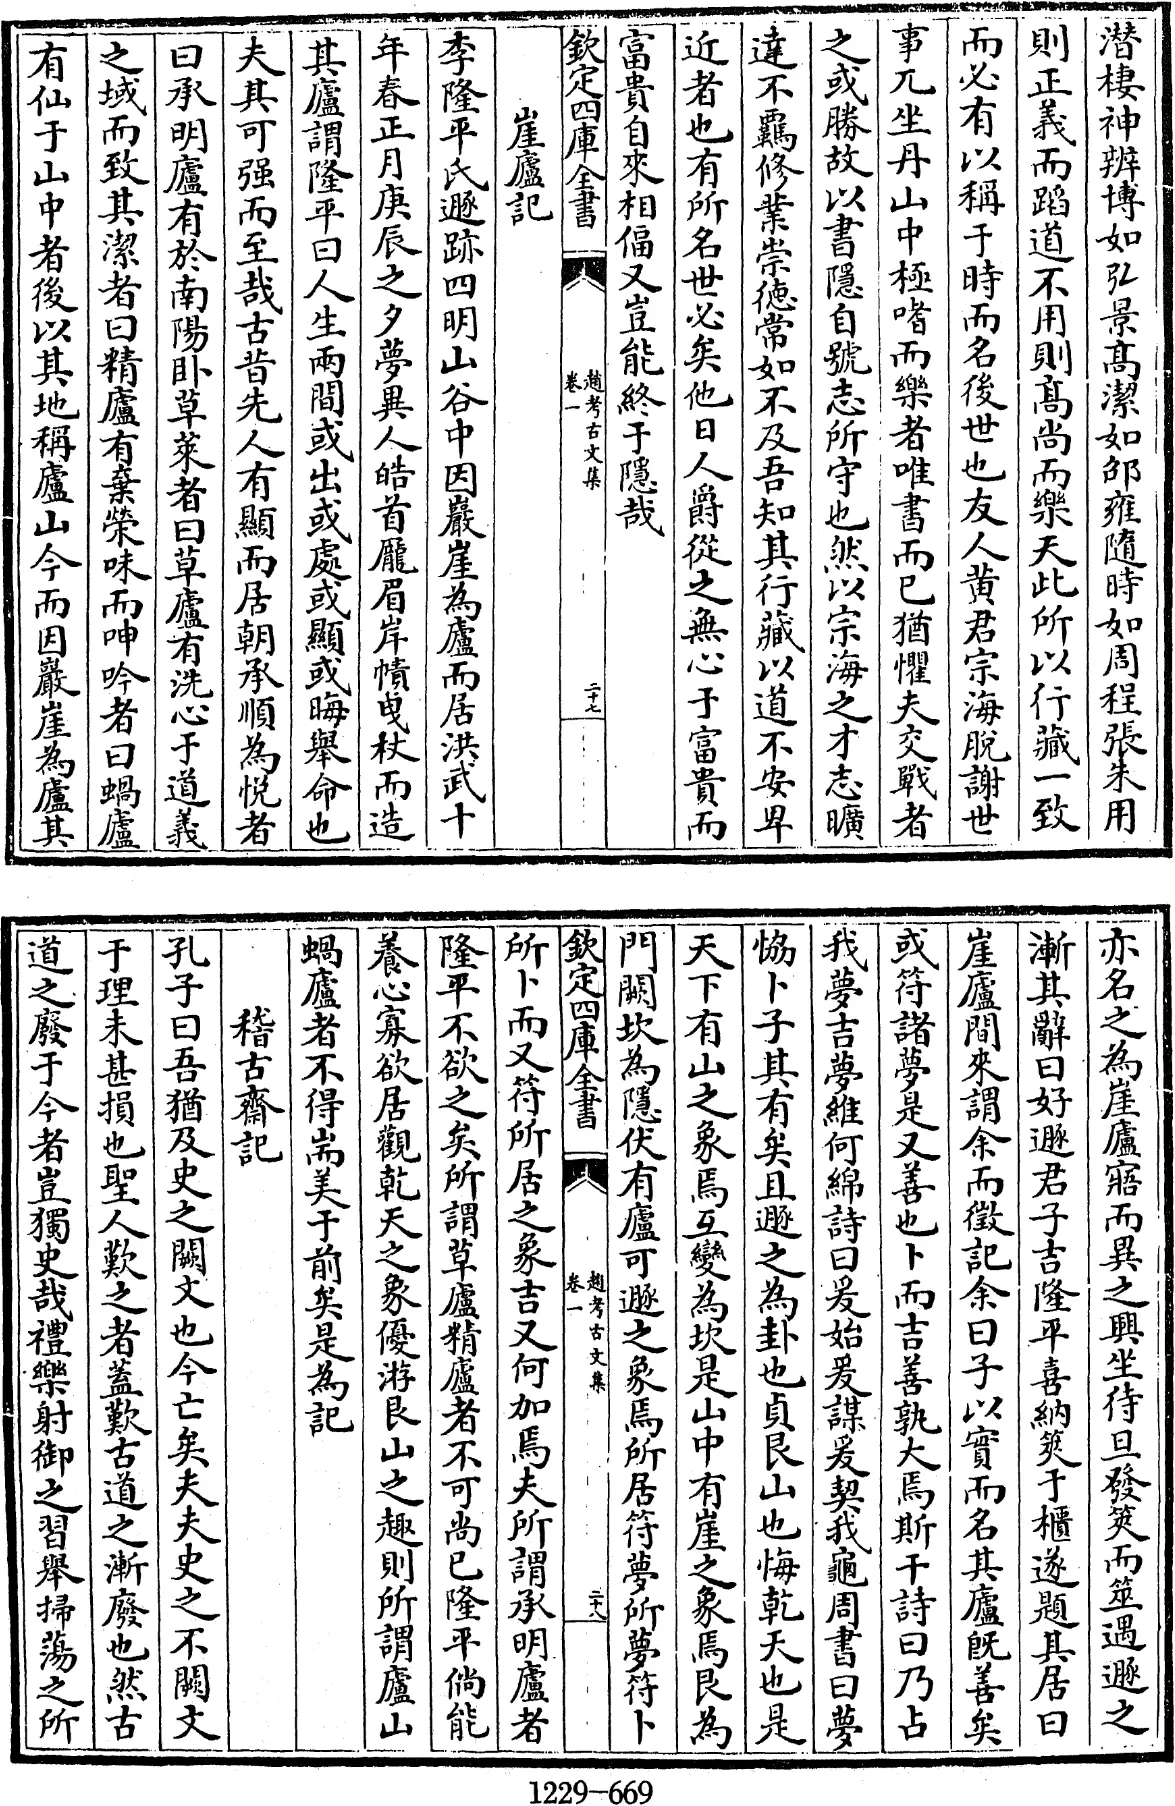 潜棲神辨博如弘景髙潔如邵雍隨時如周程張朱用
則正義而蹈道不用則髙尚而樂天此所以行藏一致
而必有以稱于時而名後世也友人黄君宗海脱謝世
事兀坐丹山中極嗜而樂者唯書而已猶懼夫交戰者
之或勝故以書隱自號志所守也然以宗海之才志曠
達不覊修業崇徳常如不及吾知其行藏以道不安卑
近者也有所名世必矣他日人爵從之無心于富貴而
富貴自來相偪又豈能終于隱哉
欽定四庫全書
趙考古文集
卷一
二十七
崖廬記
李隆平氏遯跡四明山谷中因巖崖為廬而居洪武十
年春正月庚辰之夕夢異人皓首厖眉岸幘曵杖而造
其廬謂隆平曰人生兩間或出或處或顯或晦舉命也
夫其可强而至哉古昔先人有顯而居朝承順為悦者
曰承明廬有於南陽卧草萊者曰草廬有洗心于道義
之域而致其潔者曰精廬有棄榮味而呻吟者曰蝸廬
有仙于山中者後以其地稱廬山今而因巖崖為廬其
亦名之為崖廬寤而異之興坐待旦發筴而筮遇遯之
漸其辭曰好遯君子吉隆平喜納筴于櫃遂題其居曰
崖廬間來謂余而徵記余曰子以實而名其廬旣善矣
或符諸夢是又善也卜而吉善孰大焉斯干詩曰乃占
我夢吉夢維何綿詩曰爰始爰謀爰契我龜周書曰夢
恊卜子其有矣且遯之為卦也貞艮山也悔乾天也是
天下有山之象焉互變為坎是山中有崖之象焉艮為
門闕坎為隱伏有廬可遯之象焉所居符夢所夢符卜
欽定四庫全書
趙考古文集
卷一
二十八
所卜而又符所居之象吉又何加焉夫所謂承明廬者
隆平不欲之矣所謂草廬精廬者不可尚已隆平倘能
養心寡欲居觀乾天之象優游艮山之趣則所謂廬山
蝸廬者不得耑美于前矣是為記
稽古齋記
孔子曰吾猶及史之闕文也今亡矣夫夫史之不闕文
于理未甚損也聖人歎之者蓋歎古道之漸廢也然古
道之廢于今者豈獨史哉禮樂射御之習舉掃蕩之所
1229-669